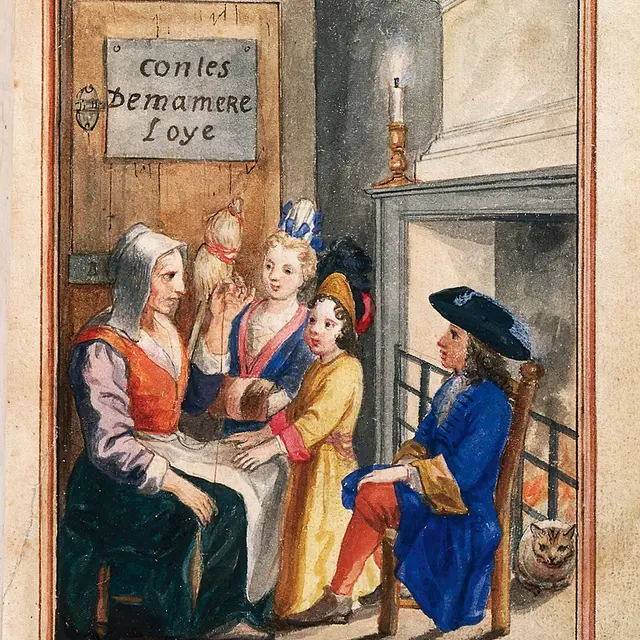 contes
Demamere
Loye